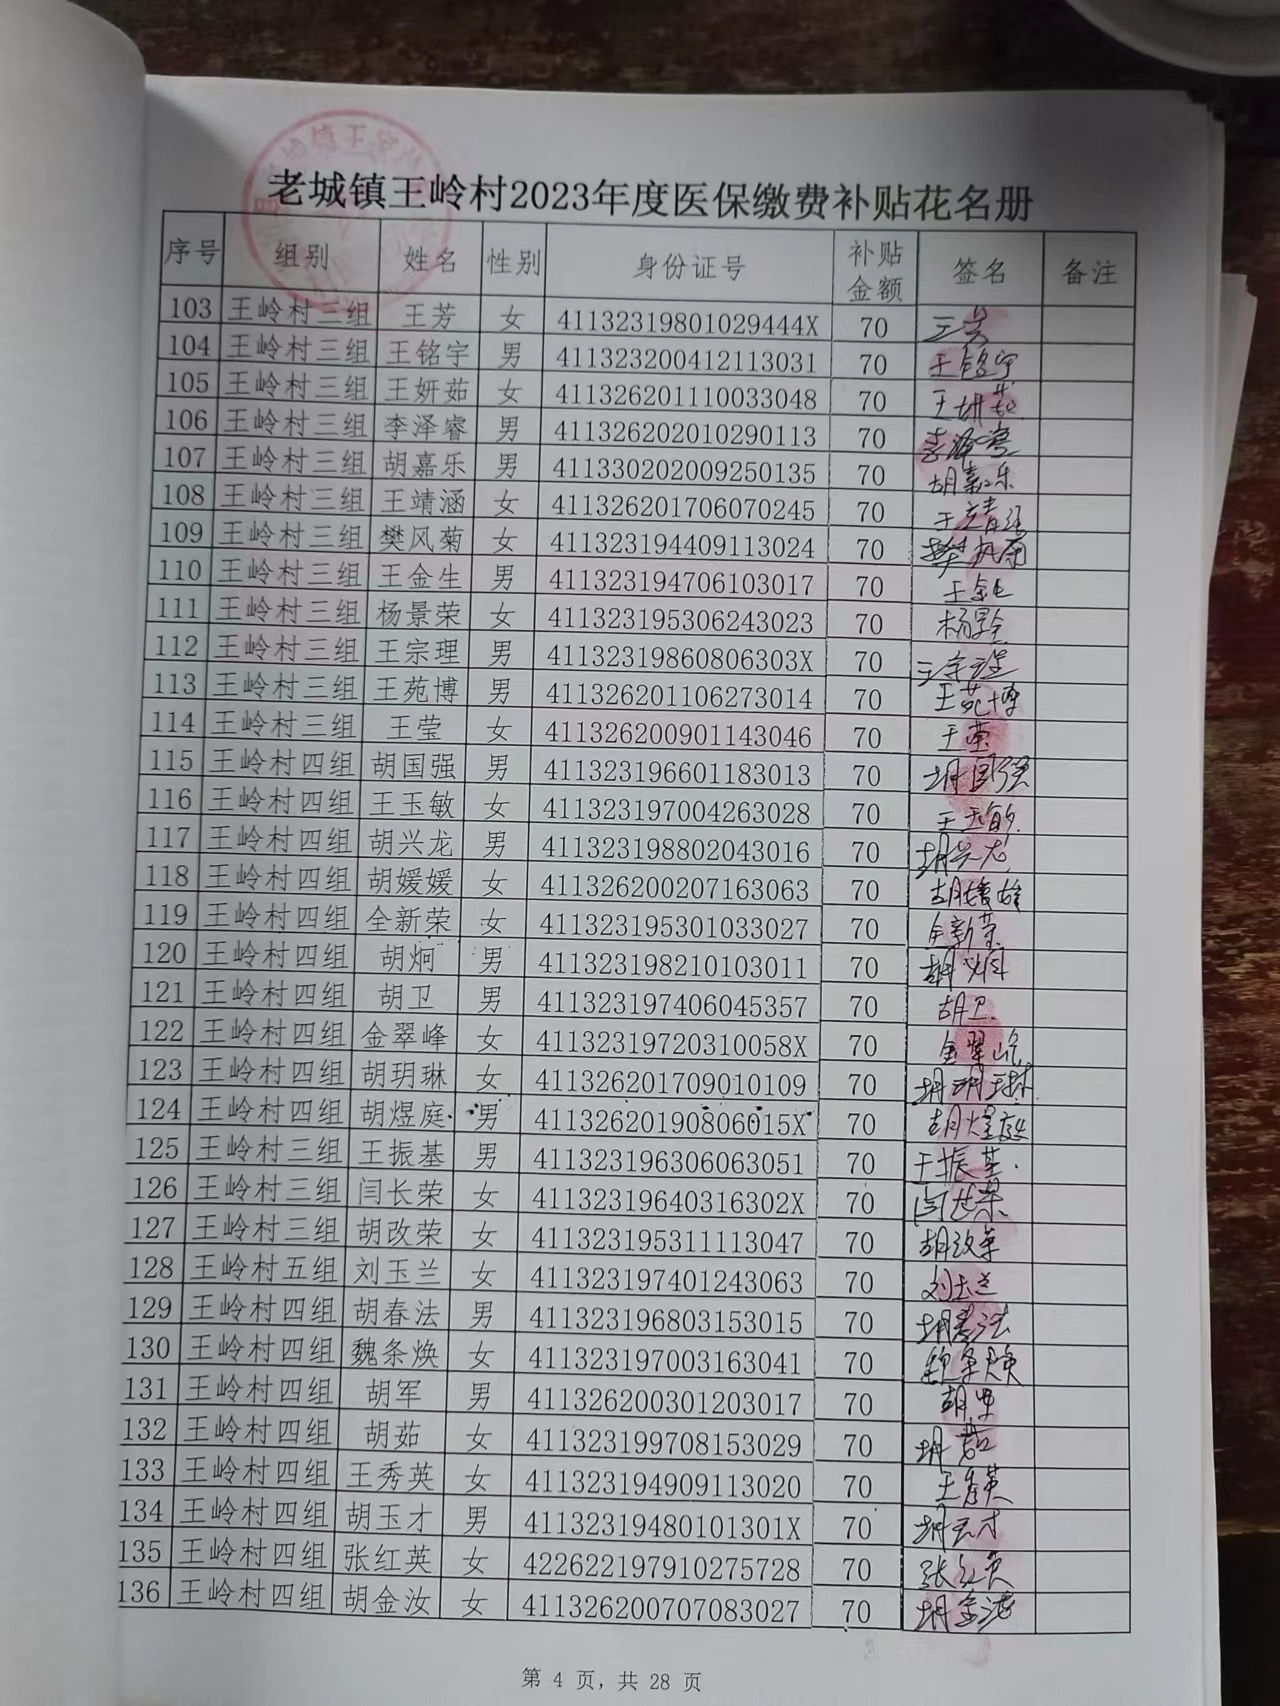 老城镇王岭村2023年度医保缴费补贴花名册
序号 组别 姓名 性别 身份证号 补贴金额 签名 备注
103 王岭村三组 王芳 女 41132319801029444X 70 王芳
104 王岭村三组 王铭宇 男 411323200412113031 70 王铭宇
105 王岭村三组 王妍茹 女 411326201110033048 70 王妍茹
106 王岭村三组 李泽睿 男 411326202010290113 70 李泽睿
107 王岭村三组 胡嘉乐 男 411330202009250135 70 胡嘉乐
108 王岭村三组 王靖涵 女 411326201706070245 70 王靖涵
109 王岭村三组 樊风菊 女 411323194409113024 70 樊风菊
110 王岭村三组 王金生 男 411323194706103017 70 王金生
111 王岭村三组 杨景荣 女 411323195306243023 70 杨景荣
112 王岭村三组 王宗理 男 41132319860806303X 70 王宗理
113 王岭村三组 王苑博 男 411326201106273014 70 王苑博
114 王岭村三组 王莹 女 411326200901143046 70 王莹
115 王岭村四组 胡国强 男 411323196601183013 70 胡国强
116 王岭村四组 王玉敏 女 411323197004263028 70 王玉敏
117 王岭村四组 胡兴龙 男 411323198802043016 70 胡兴龙
118 王岭村四组 胡媛媛 女 411326200207163063 70 胡媛媛
119 王岭村四组 全新荣 女 411323195301033027 70 全新荣
120 王岭村四组 胡炯 男 411323198210103011 70 胡炯
121 王岭村四组 胡卫 男 411323197406045357 70 胡卫
122 王岭村四组 金翠峰 女 41132319720310058X 70 金翠峰
123 王岭村四组 胡玥琳 女 411326201709010109 70 胡玥琳
124 王岭村四组 胡煜庭 男 41132620190806015X 70 胡煜庭
125 王岭村三组 王振基 男 411323196306063051 70 王振基
126 王岭村三组 闫长荣 女 41132319640316302X 70 闫长荣
127 王岭村三组 胡改荣 女 411323195311113047 70 胡改荣
128 王岭村五组 刘玉兰 女 411323197401243063 70 刘玉兰
129 王岭村四组 胡春法 男 411323196803153015 70 胡春法
130 王岭村四组 魏条焕 女 411323197003163041 70 魏条焕
131 王岭村四组 胡军 男 411326200301203017 70 胡军
132 王岭村四组 胡茹 女 411323199708153029 70 胡茹
133 王岭村四组 王秀英 女 411323194909113020 70 王秀英
134 王岭村四组 胡玉才 男 41132319480101301X 70 胡玉才
135 王岭村四组 张红英 女 422622197910275728 70 张红英
136 王岭村四组 胡金汝 女 411326200707083027 70 胡金汝
第 4 页，共 28 页